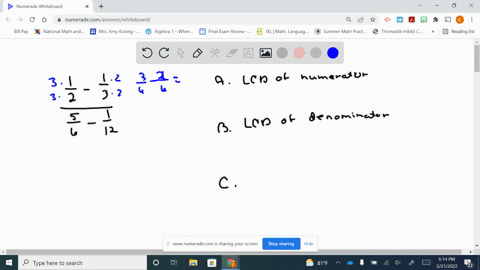 Numerade Whiteboard
numerade.com/answers/whiteboard/
Bill Pay
National Math and
Mrs. Amy Koning
Algebra 1 – Whom
Final Exam Review
IXL | Math, Languag
Summer Math Pract
Thomastik-Infeld C
Reading list
3· 1/2 ·3 - 1/3 ·2 ·2 3/6 - 2/6 =
5/6 - 1/12
A. LCD of numerator
B. LCD of denominator
C.
www.numerade.com is sharing your screen.
Stop sharing
Hide
Type here to search
81°F
6:14 PM
2/21/2022
22